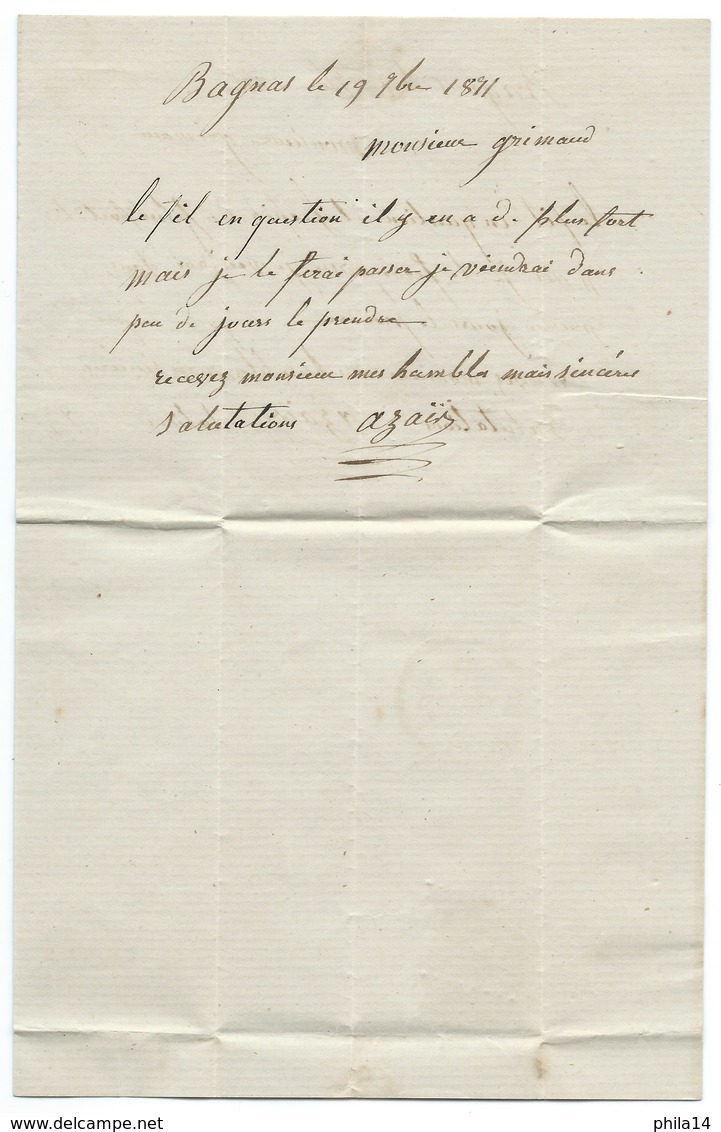 Bagnas le 19 9bre 1871
monsieur grimaud
le fil en question il y en a de plus fort
mais je le ferai passer je viendrai dans
peu de jours le prendre
recevez monsieur mes humbles mais sincéres
salutations azaïs
phila14